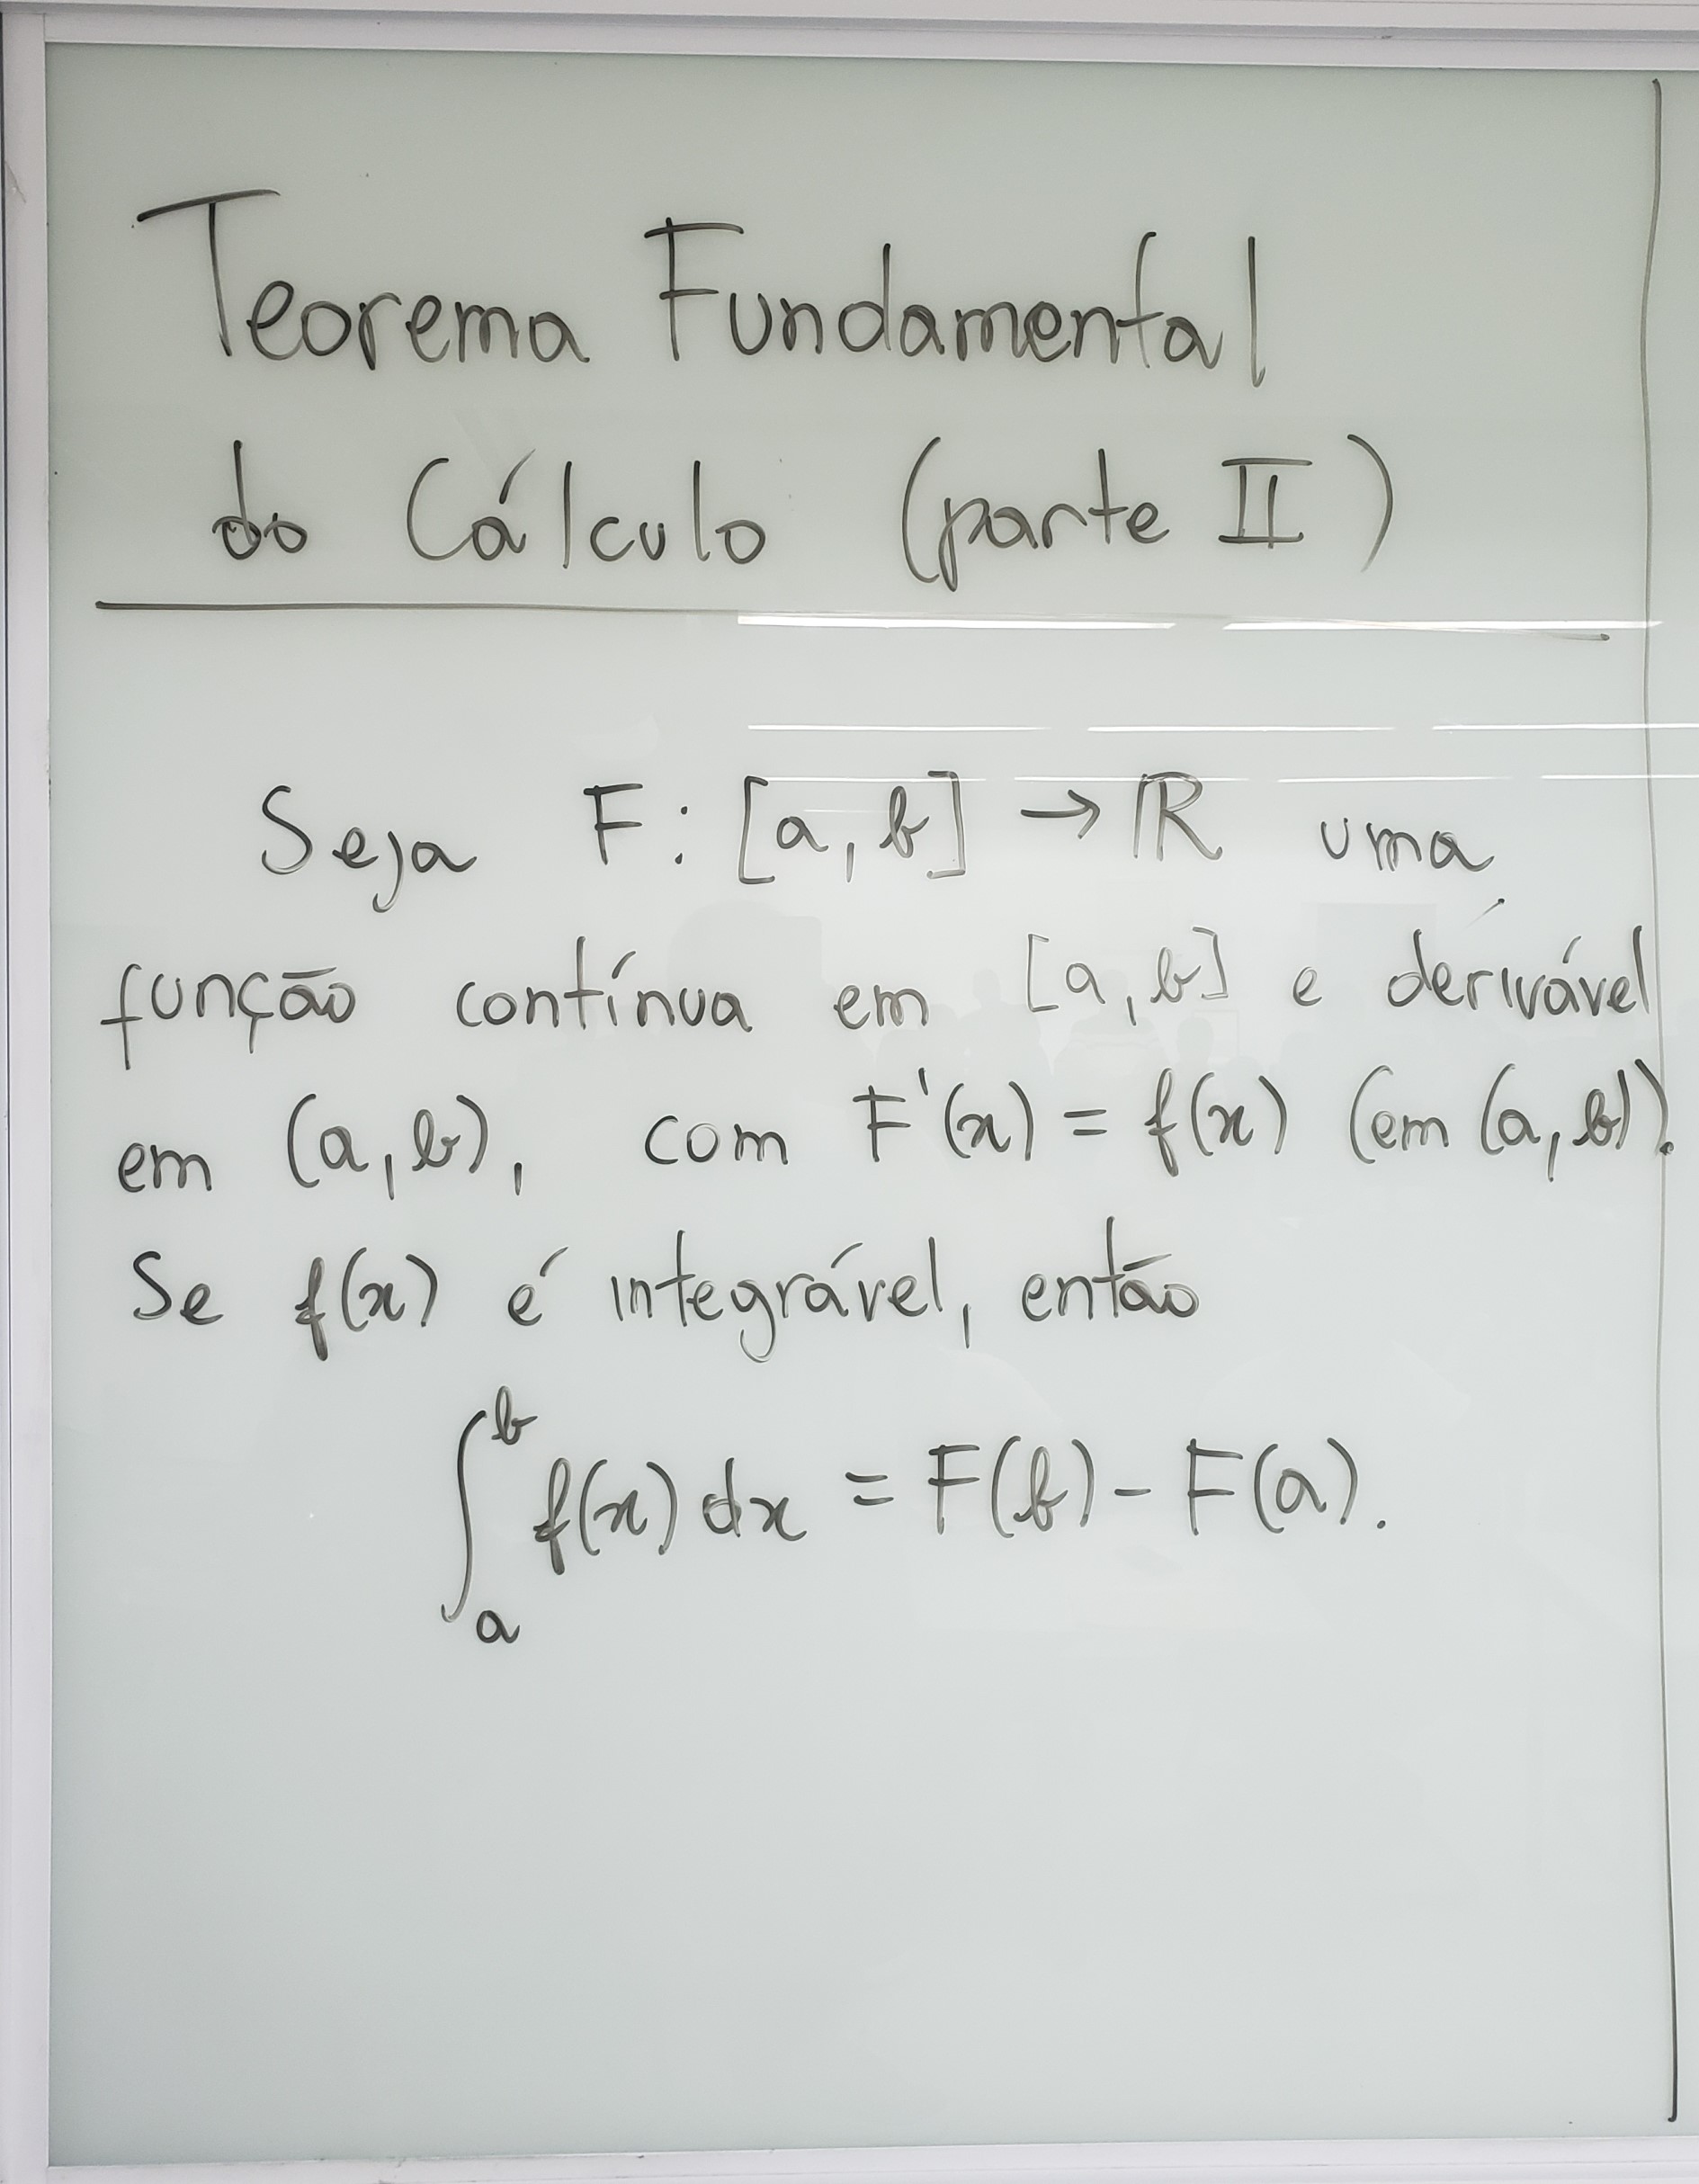 Teorema Fundamental
do Cálculo (parte II)
Seja F: [a, b] → ℝ uma
função contínua em [a, b] e derivável
em (a, b), com F'(x) = f(x) (em (a, b)).
Se f(x) é integrável, então
∫_a^b f(x) dx = F(b) - F(a).